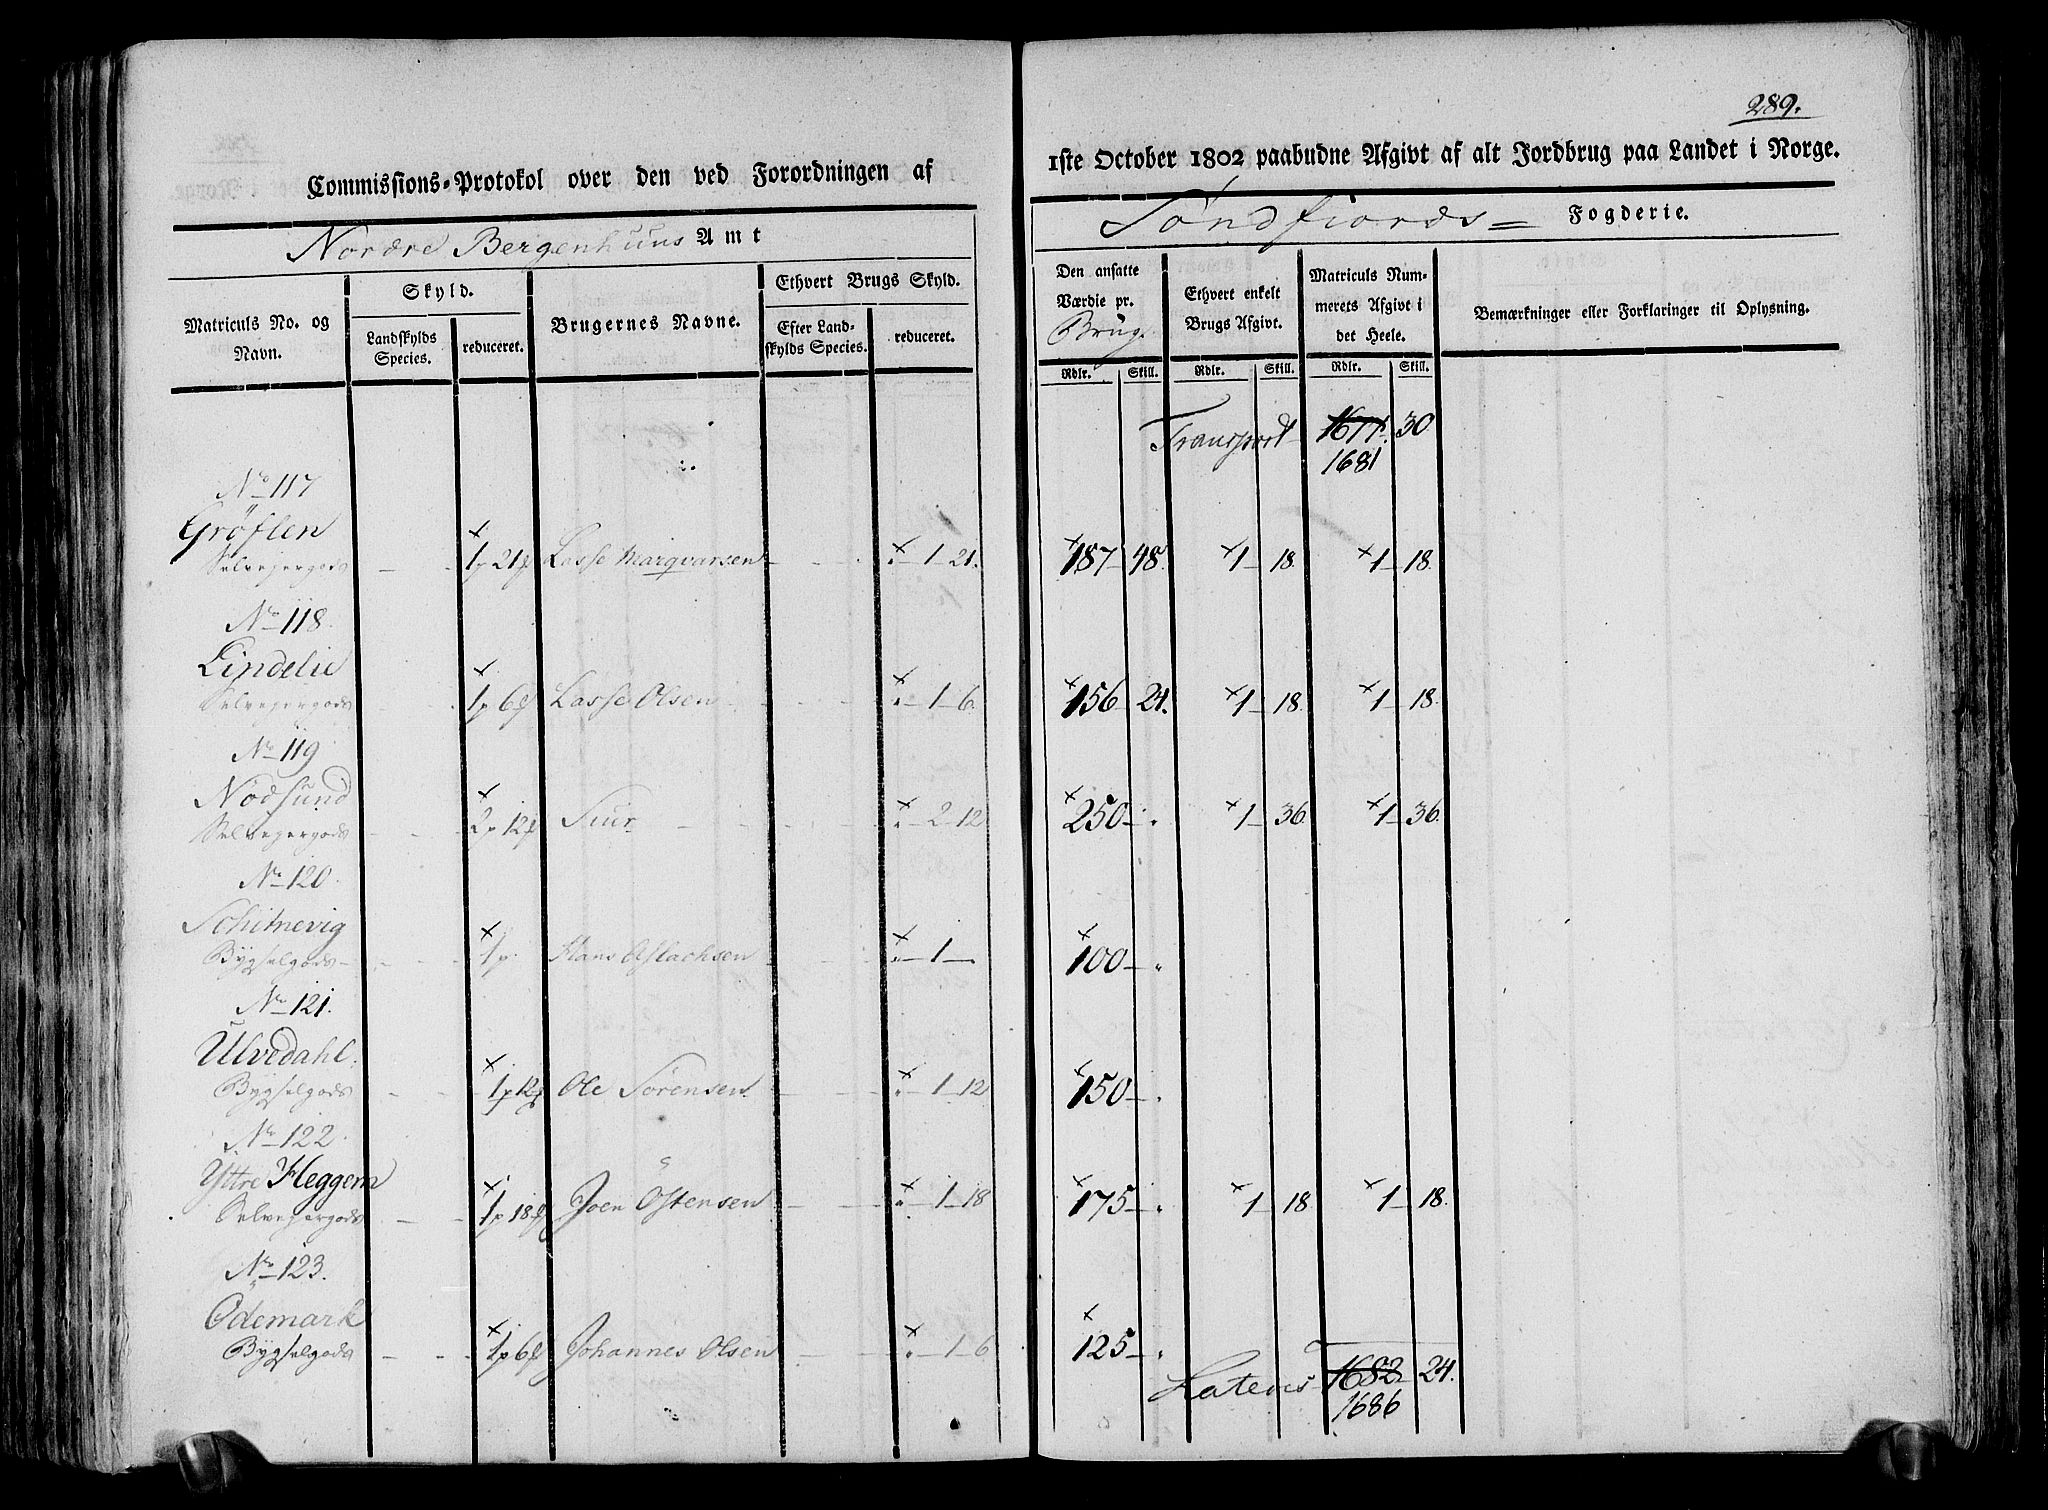 289.
Commissions-Protokol over den ved Forordningen af 1ste October 1802 paabudne Afgivt af alt Jordbrug paa Landet i Norge.
Nordre Bergenhuus Amt
Söndfiords Fogderie.
Matriculs No. og Navn.
Skyld.
Landskylds Species.
reduceret.
Brugernes Navne.
Ethvert Brugs Skyld.
Efter Landskylds Species.
reduceret.
Den ansatte Værdie pr. Brug.
Ethvert enkelt Brugs Afgivt.
Matriculs Nummerets Afgivt i det Heele.
Bemærkninger eller Forklaringer til Oplysning.
Rdlr. Skill. Rdlr. Skill. Rdlr. Skill.
Transport 1677. 30
1681
No 117
Gröflen
Selvejergods 1p 21f Lasse Marqvarsen 1 21. 187 48. 1 18. 1 18.
No 118.
Lindelie
Selvejergods 1p 6f Lasse Olsen 1 6. 156 24. 1 18. 1 18.
No 119
Nodsund
Selvejergods 2p 12f Siur 2 12 250 1 36. 1 36.
No 120.
Schitnevig
Bygselgods 1p. Hans Aslachsen 1 100
No 121.
Ulvedahl.
Bygselgods 1p 12f Ole Sörensen 1 12 150
No 122.
Yttre Heggem
Selvejergods 1p 18f Joen Ostensen 1 18 175 1 18 1 18.
No 123.
Ödemark
Bygselgods 1p 6f Johannes Olsen 1 6 125
Lateris 1682 24.
1686